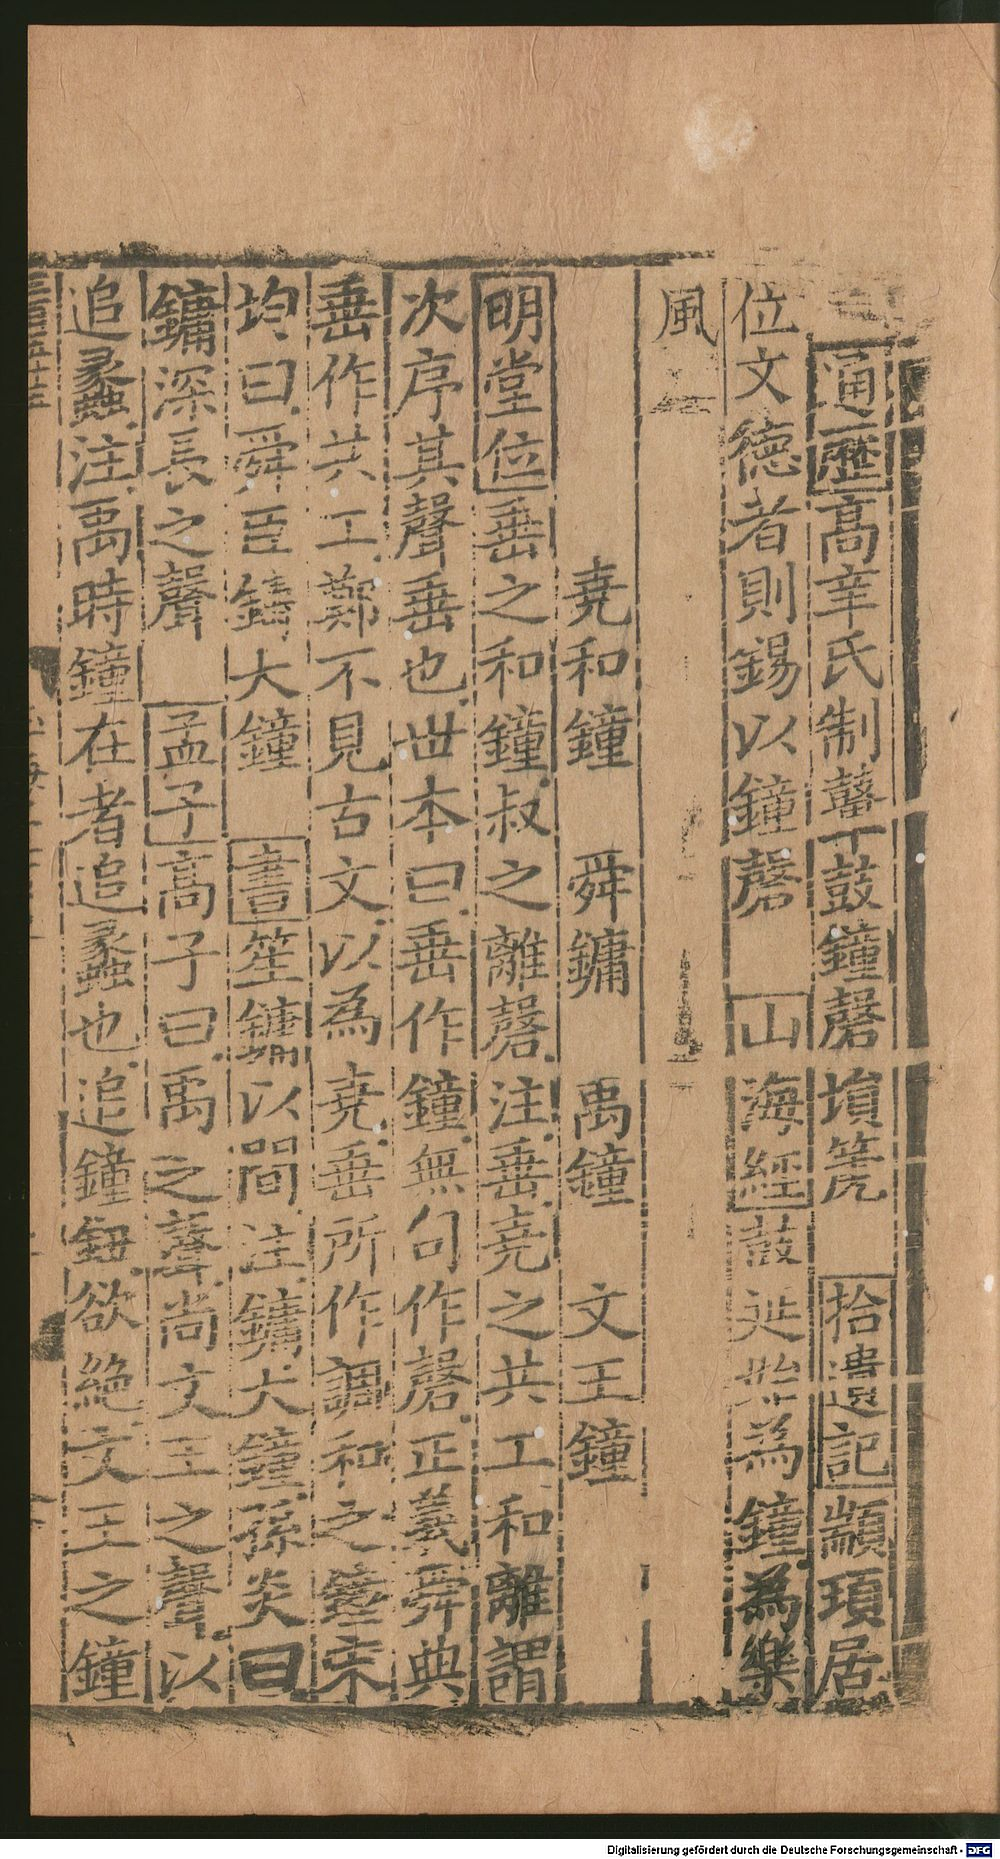 通歷高辛氏制鼙鼓鐘磬塤箎 拾遺記顓頊居
位文德者則錫以鐘磬 山海經鼓延始為鐘為樂
風
堯和鐘 舜鏞 禹鐘 文王鐘
明堂位垂之和鐘叔之離磬注垂堯之共工和離謂
次序其聲垂也世本曰垂作鐘無句作磬正義舜典
垂作共工鄭不見古文以為堯垂所作調和之鐘宋
均曰舜臣鑄大鐘 書笙鏞以間注鏞大鐘孫炎曰
鏞深長之聲 孟子高子曰禹之聲尚文王之聲以
追蠡注禹時鐘在者追蠡也追鐘鈕欲絕文王之鐘
Digitalisierung gefördert durch die Deutsche Forschungsgemeinschaft - DFG